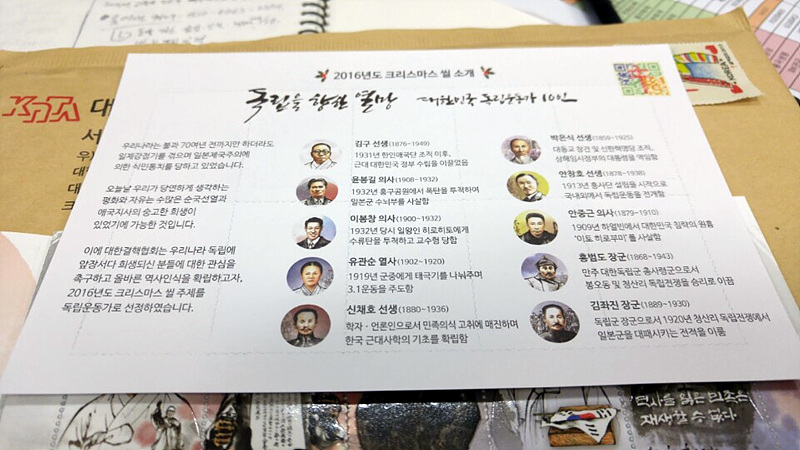 2016년도 크리스마스 씰 소개
독립을 향한 열망 대한민국 독립운동가 10인
우리나라는 불과 70여년 전까지만 하더라도
일제강점기를 겪으며 일본제국주의에
의한 식민통치를 당하고 있었습니다.
오늘날 우리가 당연하게 생각하는
평화와 자유는 수많은 순국선열과
애국지사의 숭고한 희생이
있었기에 가능한 것입니다.
이에 대한결핵협회는 우리나라 독립에
앞장서다 희생되신 분들에 대한 관심을
촉구하고 올바른 역사인식을 확립하고자,
2016년도 크리스마스 씰 주제를
독립운동가로 선정하였습니다.
김구 선생(1876~1949)
1931년 한인애국단 조직 이후,
근대 대한민국 정부 수립을 이끌었음
윤봉길 의사(1908~1932)
1932년 홍구공원에서 폭탄을 투척하여
일본군 수뇌부를 사살함
이봉창 의사(1900~1932)
1932년 당시 일왕인 히로히토에게
수류탄을 투척하고 교수형 당함
유관순 열사(1902~1920)
1919년 군중에게 태극기를 나눠주며
3.1운동을 주도함
신채호 선생(1880~1936)
학자·언론인으로서 민족의식 고취에 매진하며
한국 근대사학의 기초를 확립함
박은식 선생(1859~1925)
대동교 창건 및 신한혁명당 조직,
상해임시정부의 대통령을 역임함
안창호 선생(1878~1938)
1913년 흥사단 설립을 시작으로
국내외에서 독립운동을 전개함
안중근 의사(1879~1910)
1909년 하얼빈에서 대한민국 침략의 원흉
'이토 히로부미'를 사살함
홍범도 장군(1868~1943)
만주 대한독립군 총사령군으로서
봉오동 및 청산리 독립전쟁을 승리로 이끔
김좌진 장군(1889~1930)
독립군 장군으로서 1920년 청산리 독립전쟁에서
일본군을 대패시키는 전적을 이룸
KNTA 대
서
대한
역사를 잊은 민족은
재생할 수 없다